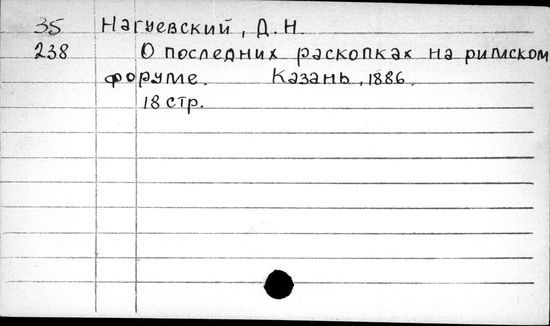 35 Нагуевский, Д.Н.
238 О последних раскопках на римском
форуме. Казань, 1886.
18 стр.